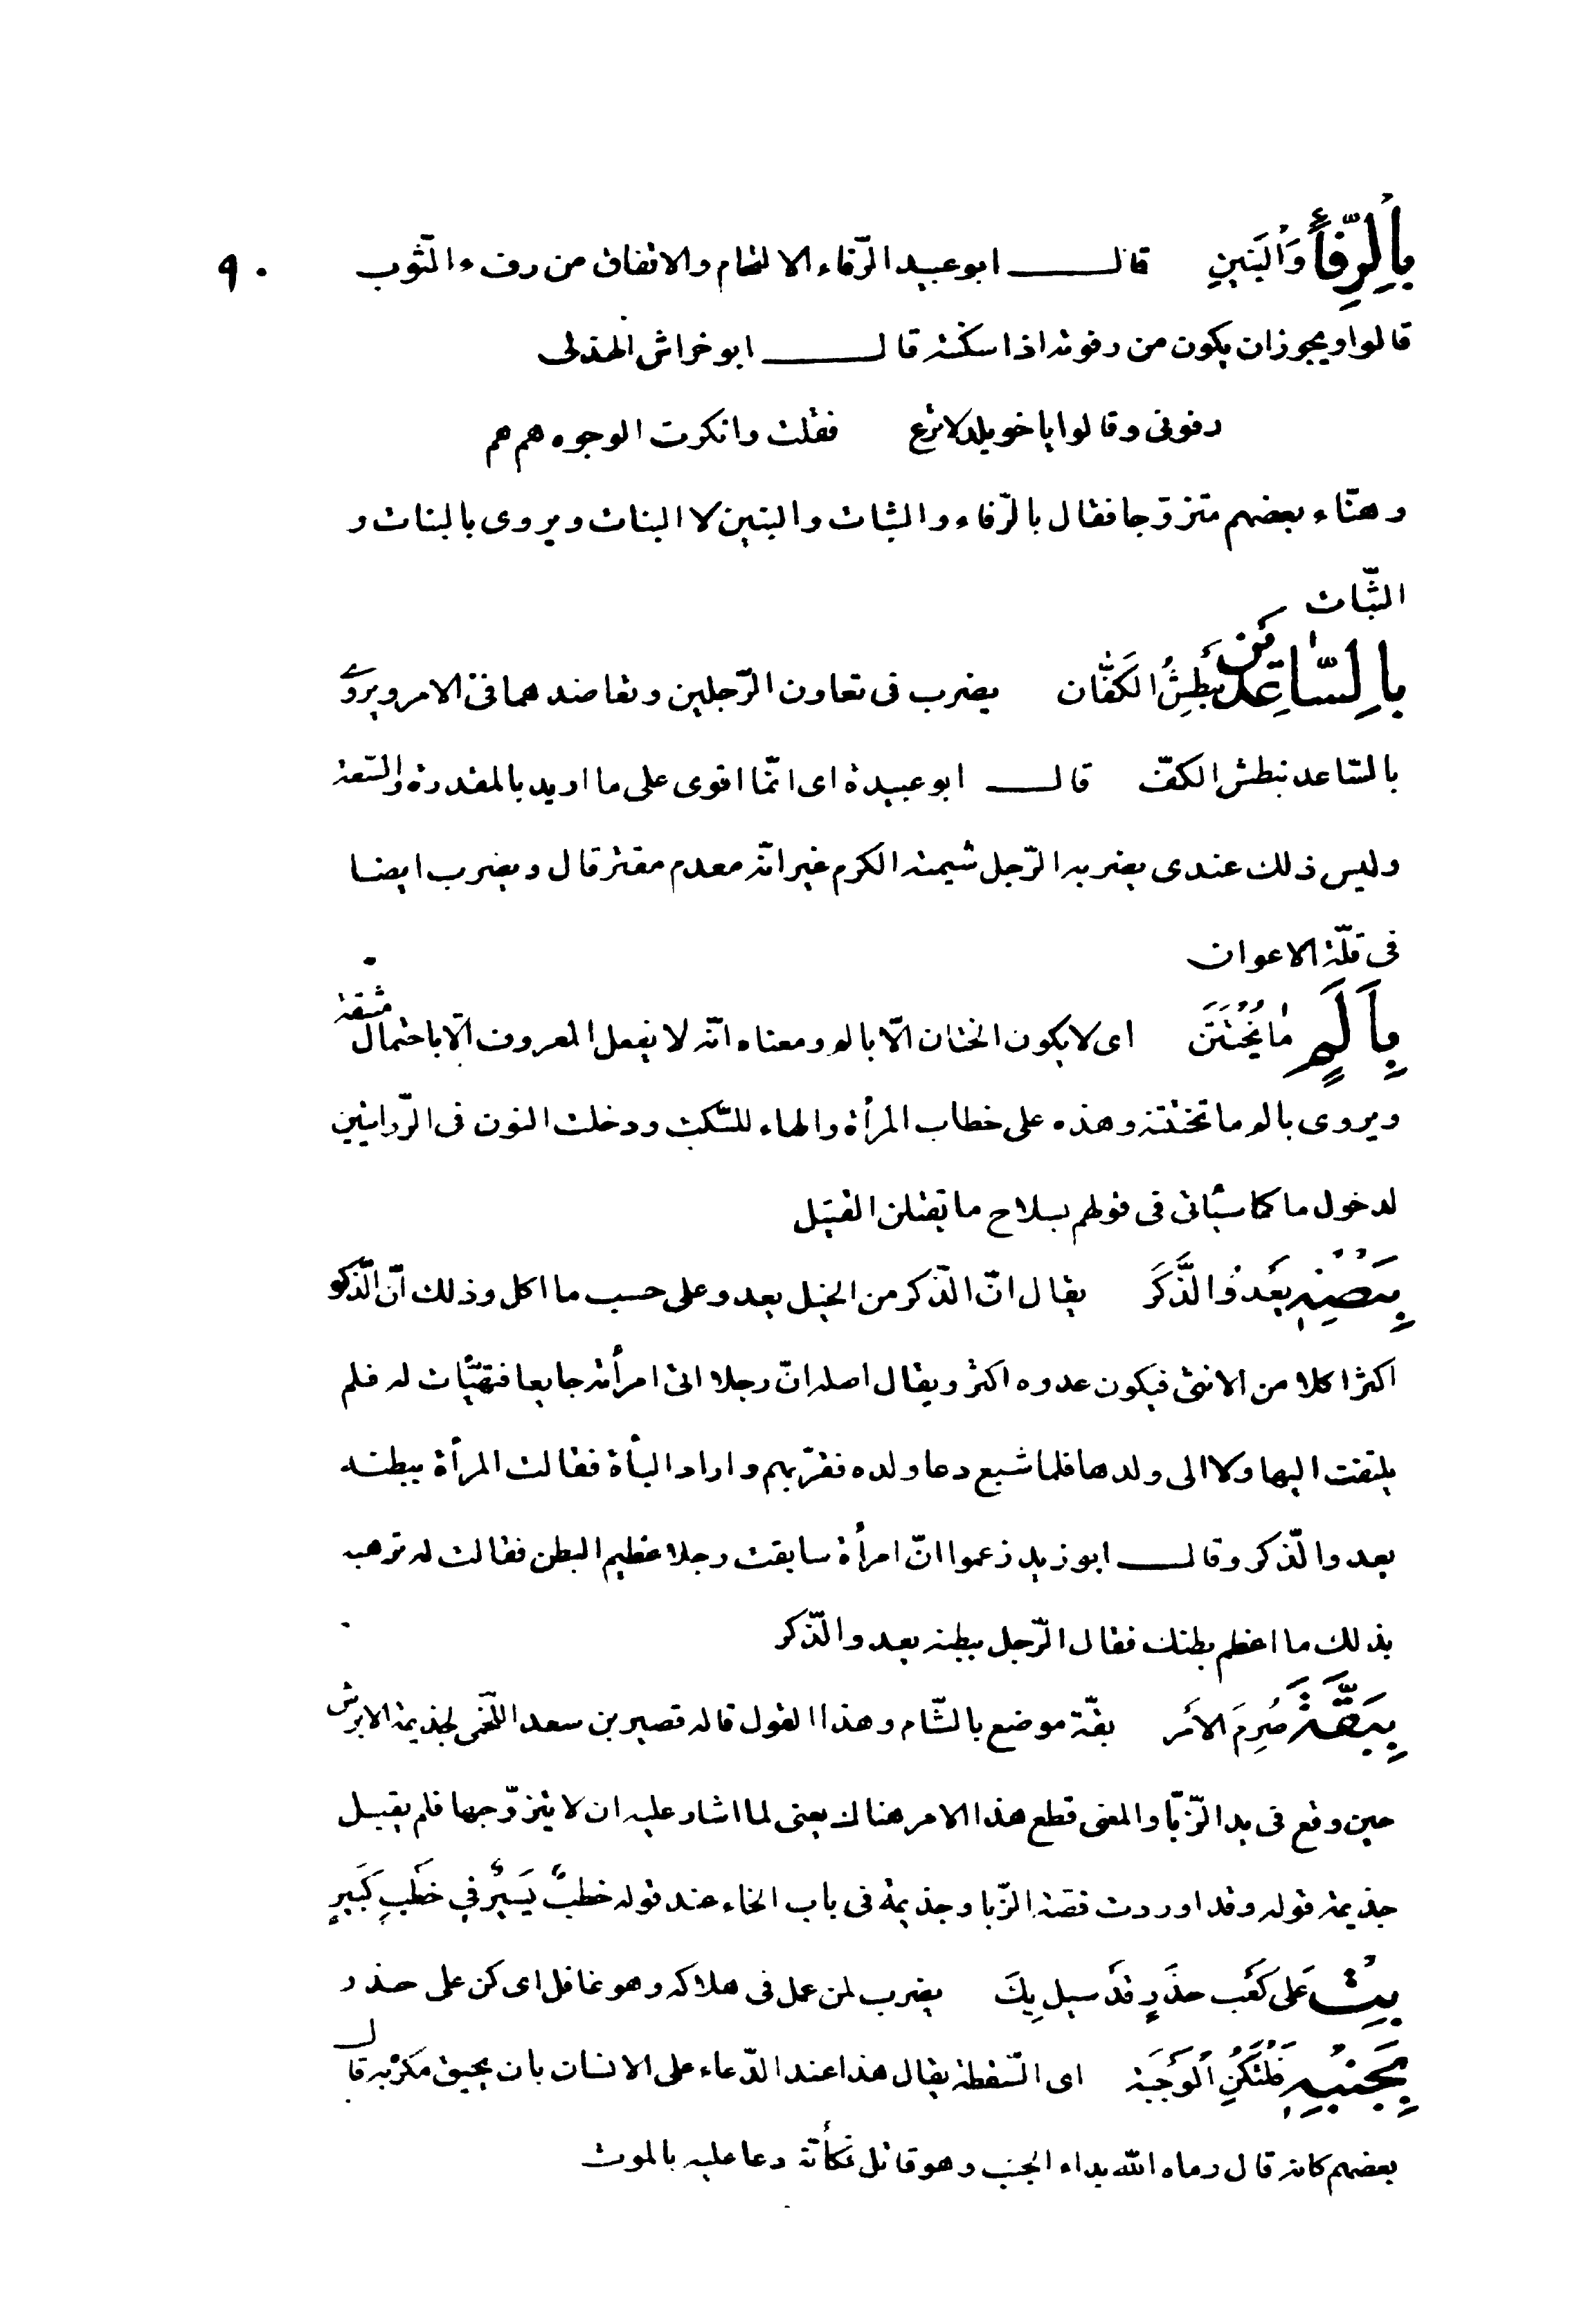 بِالرِّفَاءِ وَالْبَنِينِ قال ابو عبيد الرّفاء الالتحام والاتفاق من رفء الثّوب ٩٠
قالوا ويجوزان يكون من رفوته اذا سكنته قال ابو خراش الهذلى
رفونى وقالوا يا خويلد لا ترع فقلت وانكرت الوجوه هم هم
وهنّاء بعضهم متزوّجا فقال بالرّفاء والثبات والبنين لا البنات ويروى بالبنات و
الثّبات
بِالسَّاعِدَيْنِ تَبْطِشُ الكَفَّان يضرب فى تعاون الرّجلين وتعاضدهما فى الامر ويروى
بالسّاعد تبطش الكفّ قال ابو عبيدة اى انّما اقوى على ما اريد بالمقدرة والسّعة
وليس ذلك عندى يضربه الرّجل شيمته الكرم غير انّه معدم مقتر قال ويضرب ايضا
فى قلّة الاعوان
بِاَلَمٍ مَا تُخْتَنَنَّ اى لا يكون الختان الّا بالم ومعناه انّه لا يفعل المعروف الّا باحتمال مشقة
ويروى بالم ما تختننه وهذه على خطاب المرأة والهاء للسّكت ودخلت النون فى الرّوايتين
لدخول ما كما سيأتى فى قولهم بسلاح ما تقتلن القتيل
بِبَطْنِهِ يَعْدُو الذَّكَرَ يقال انّ الذّكر من الخيل يعدو على حسب ما اكل وذلك انّ الذّكر
اكثر اكلا من الانثى فيكون عدوه اكثر ويقال اصله انّ رجلا اتى امرأته جايعا فتهيّأت له فلم
يلتفت اليها ولا الى ولدها فلما شبع دعا ولده فقرّبهم واراد الباءة فقالت المرأة ببطنه
يعدوا الذّكر وقال ابو زيد زعموا انّ امرأة سابقت رجلا عظيم البطن فقالت له ترهبه
بذلك ما اعظم بطنك فقال الرّجل ببطنه يعدو الذّكر
بِبَقَّةَ صُرِمَ الاَمْر بقّة موضع بالشّام وهذا القول قاله قصير بن سعد اللّخمى لجذيمة الابرش
حين وقع فى يد الزّبّا والمعنى قطع هذا الامر هناك يعنى لما اشار عليه ان لا يتزوّجها فلم يقبل
جذيمة قوله وقد اوردت قصّة الزّبا وجذيمة فى باب الخاء عند قوله خطبٌ يَسيرٌ في خَطبٍ كَبيرٍ
بِتْ عَلى كَعْبِ حَذَرٍ قَدْ سيل بِكَ يضرب لمن عمل فى هلاكه وهو غافل اى كن على حذر
بِجَنْبِهِ فَلْتَكُنِ الْوَجْبَة اى السّقطة يقال هذا عند الدّعاء على الانسان بان يحيق مكر به قال
بعضهم كانه قال رماه اللّه بداء الجنب وهو قاتل فكأنّه دعا عليه بالموت